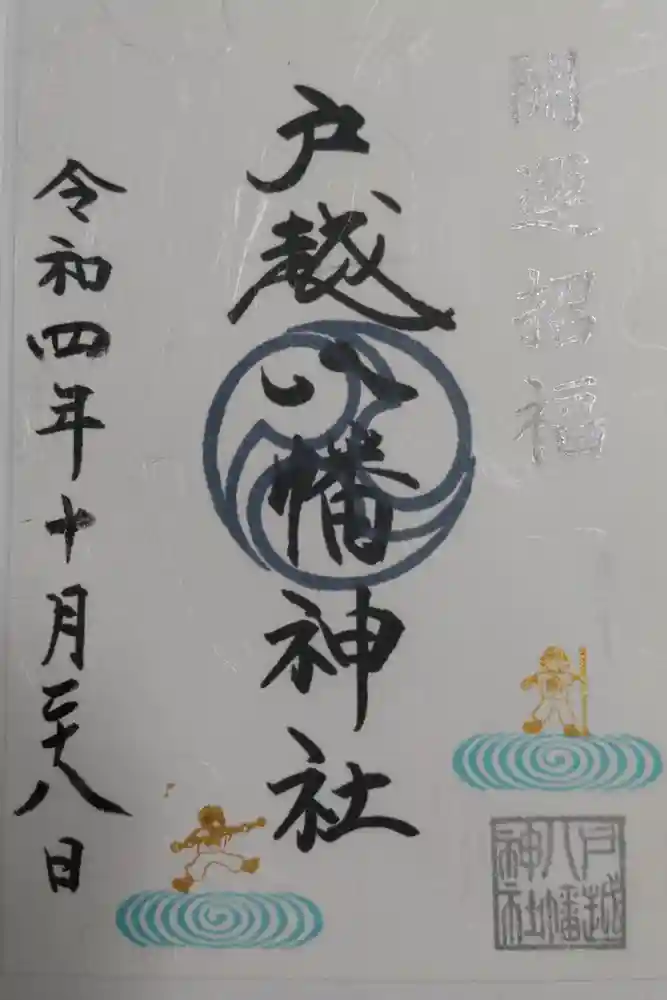 開運招福
戸越八幡神社
令和四年十月二十八日
戸越
八幡
神社